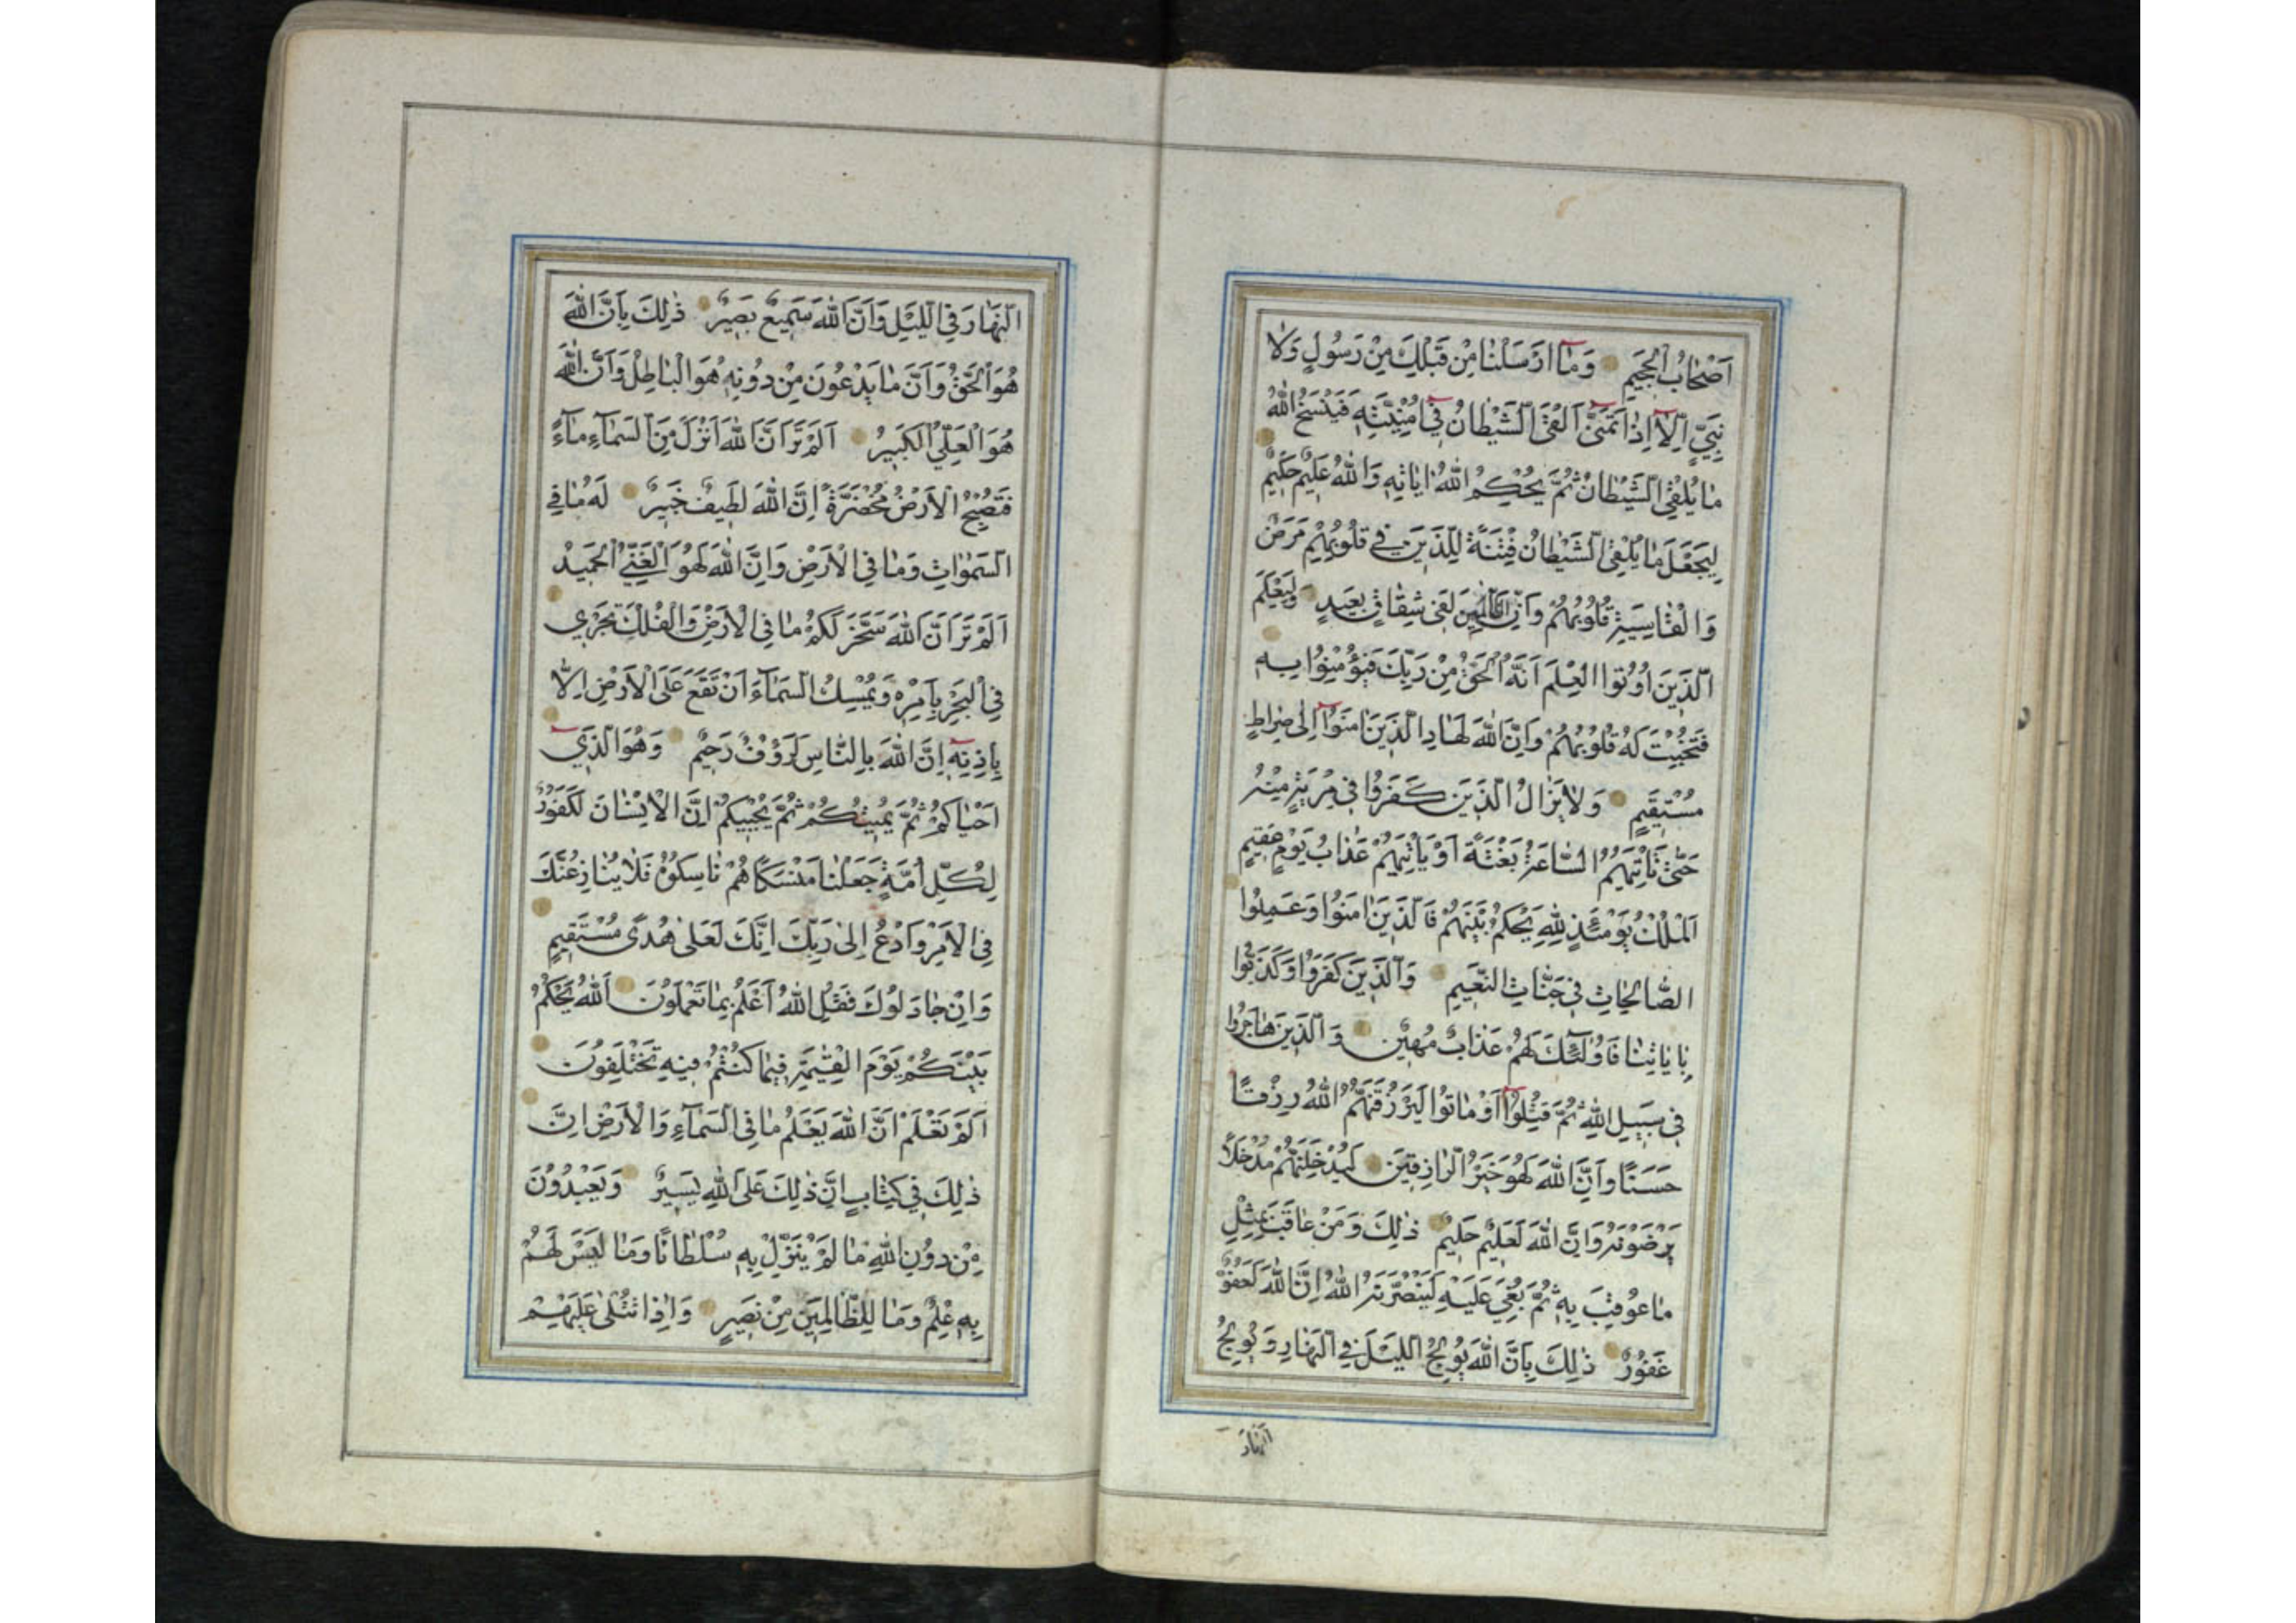 اَصْحَابُ الْجَحِيمِ وَمَآ اَرْسَلْنَا مِنْ قَبْلِكَ مِنْ رَسُولٍ وَلَا
نَبِيٍّ اِلَّآ اِذَا تَمَنّٰىٓ اَلْقَى الشَّيْطَانُ فِيٓ اُمْنِيَّتِهِ فَيَنْسَخُ اللّٰهُ
مَا يُلْقِي الشَّيْطَانُ ثُمَّ يُحْكِمُ اللّٰهُ اٰيَاتِهِ وَاللّٰهُ عَلِيمٌ حَكِيمٌ
لِيَجْعَلَ مَا يُلْقِي الشَّيْطَانُ فِتْنَةً لِلَّذِينَ فِي قُلُوبِهِمْ مَرَضٌ
وَالْقَاسِيَةِ قُلُوبُهُمْ وَاِنَّ الظَّالِمِينَ لَفِي شِقَاقٍ بَعِيدٍ وَلِيَعْلَمَ
الَّذِينَ اُوتُوا الْعِلْمَ اَنَّهُ الْحَقُّ مِنْ رَبِّكَ فَيُؤْمِنُوا بِهِ
فَتُخْبِتَ لَهُ قُلُوبُهُمْ وَاِنَّ اللّٰهَ لَهَادِ الَّذِينَ اٰمَنُوٓا اِلٰى صِرَاطٍ
مُسْتَقِيمٍ وَلَا يَزَالُ الَّذِينَ كَفَرُوا فِي مِرْيَةٍ مِنْهُ
حَتّٰى تَأْتِيَهُمُ السَّاعَةُ بَغْتَةً اَوْ يَأْتِيَهُمْ عَذَابُ يَوْمٍ عَقِيمٍ
اَلْمُلْكُ يَوْمَئِذٍ لِلّٰهِ يَحْكُمُ بَيْنَهُمْ فَالَّذِينَ اٰمَنُوا وَعَمِلُوا
الصَّالِحَاتِ فِي جَنَّاتِ النَّعِيمِ وَالَّذِينَ كَفَرُوا وَكَذَّبُوا
بِاٰيَاتِنَا فَاُولٰٓئِكَ لَهُمْ عَذَابٌ مُهِينٌ وَالَّذِينَ هَاجَرُوا
فِي سَبِيلِ اللّٰهِ ثُمَّ قُتِلُوٓا اَوْ مَاتُوا لَيَرْزُقَنَّهُمُ اللّٰهُ رِزْقًا
حَسَنًا وَاِنَّ اللّٰهَ لَهُوَ خَيْرُ الرَّازِقِينَ لَيُدْخِلَنَّهُمْ مُدْخَلًا
يَرْضَوْنَهُ وَاِنَّ اللّٰهَ لَعَلِيمٌ حَلِيمٌ ذٰلِكَ وَمَنْ عَاقَبَ بِمِثْلِ
مَا عُوقِبَ بِهِ ثُمَّ بُغِيَ عَلَيْهِ لَيَنْصُرَنَّهُ اللّٰهُ اِنَّ اللّٰهَ لَعَفُوٌّ
غَفُورٌ ذٰلِكَ بِاَنَّ اللّٰهَ يُولِجُ اللَّيْلَ فِي النَّهَارِ وَيُولِجُ
النَّهَارَ
النَّهَارَ فِي اللَّيْلِ وَاَنَّ اللّٰهَ سَمِيعٌ بَصِيرٌ ذٰلِكَ بِاَنَّ اللّٰهَ
هُوَ الْحَقُّ وَاَنَّ مَا يَدْعُونَ مِنْ دُونِهِ هُوَ الْبَاطِلُ وَاَنَّ اللّٰهَ
هُوَ الْعَلِيُّ الْكَبِيرُ اَلَمْ تَرَ اَنَّ اللّٰهَ اَنْزَلَ مِنَ السَّمَآءِ مَآءً
فَتُصْبِحُ الْاَرْضُ مُخْضَرَّةً اِنَّ اللّٰهَ لَطِيفٌ خَبِيرٌ لَهُ مَا فِي
السَّمٰوَاتِ وَمَا فِي الْاَرْضِ وَاِنَّ اللّٰهَ لَهُوَ الْغَنِيُّ الْحَمِيدُ
اَلَمْ تَرَ اَنَّ اللّٰهَ سَخَّرَ لَكُمْ مَا فِي الْاَرْضِ وَالْفُلْكَ تَجْرِي
فِي الْبَحْرِ بِاَمْرِهِ وَيُمْسِكُ السَّمَآءَ اَنْ تَقَعَ عَلَى الْاَرْضِ اِلَّا
بِاِذْنِهِٓ اِنَّ اللّٰهَ بِالنَّاسِ لَرَؤُفٌ رَحِيمٌ وَهُوَ الَّذِيٓ
اَحْيَاكُمْ ثُمَّ يُمِيتُكُمْ ثُمَّ يُحْيِيكُمْ اِنَّ الْاِنْسَانَ لَكَفُورٌ
لِكُلِّ اُمَّةٍ جَعَلْنَا مَنْسَكًا هُمْ نَاسِكُوهُ فَلَا يُنَازِعُنَّكَ
فِي الْاَمْرِ وَادْعُ اِلٰى رَبِّكَ اِنَّكَ لَعَلٰى هُدًى مُسْتَقِيمٍ
وَاِنْ جَادَلُوكَ فَقُلِ اللّٰهُ اَعْلَمُ بِمَا تَعْمَلُونَ اَللّٰهُ يَحْكُمُ
بَيْنَكُمْ يَوْمَ الْقِيٰمَةِ فِيمَا كُنْتُمْ فِيهِ تَخْتَلِفُونَ
اَلَمْ تَعْلَمْ اَنَّ اللّٰهَ يَعْلَمُ مَا فِي السَّمَآءِ وَالْاَرْضِ اِنَّ
ذٰلِكَ فِي كِتَابٍ اِنَّ ذٰلِكَ عَلَى اللّٰهِ يَسِيرٌ وَيَعْبُدُونَ
مِنْ دُونِ اللّٰهِ مَا لَمْ يُنَزِّلْ بِهِ سُلْطَانًا وَمَا لَيْسَ لَهُمْ
بِهِ عِلْمٌ وَمَا لِلظَّالِمِينَ مِنْ نَصِيرٍ وَاِذَا تُتْلٰى عَلَيْهِمْ